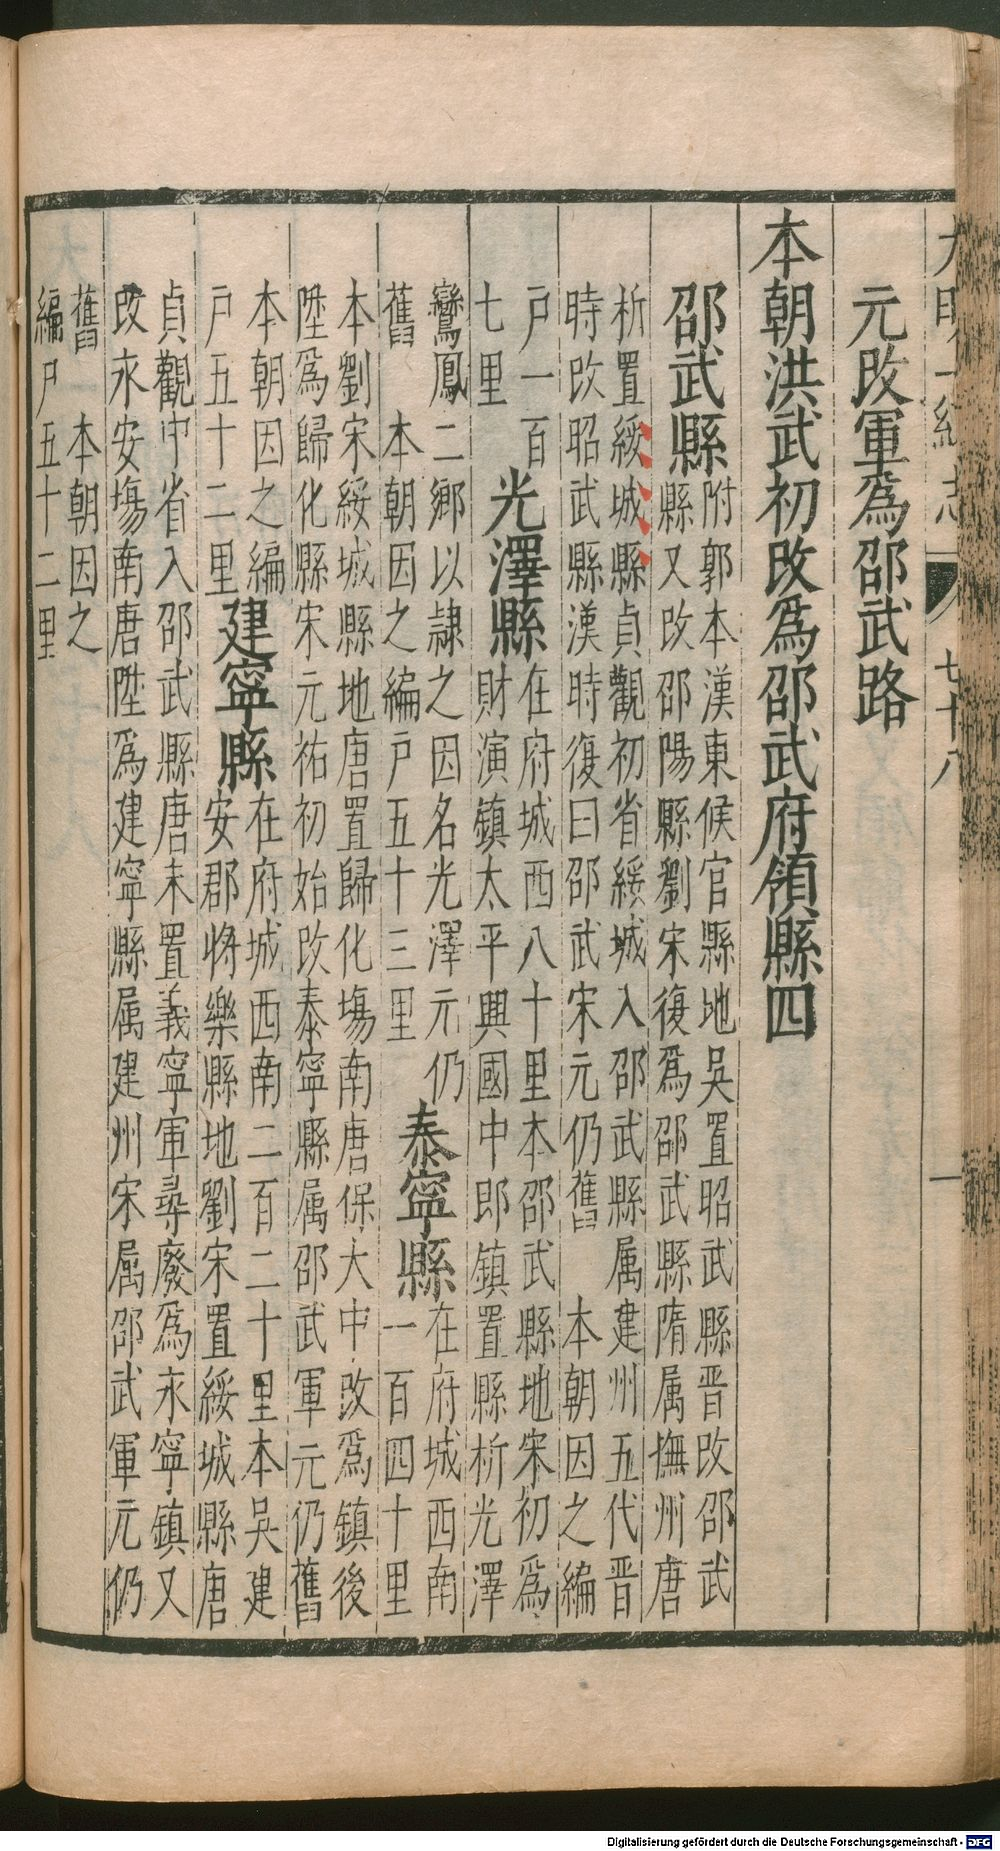 大明一統志 七十八 一
元改軍爲邵武路
本朝洪武初改爲邵武府領縣四
邵武縣
附郭本漢東候官縣地吳置昭武縣晉改邵武
縣又改邵陽縣劉宋復爲邵武縣隋属撫州唐
析置綏城縣貞觀初省綏城入邵武縣属建州五代晋
時改昭武縣漢時復曰邵武宋元仍舊 本朝因之編
戶一百
七里
光澤縣
在府城西八十里本邵武縣地宋初爲
財演鎮太平興國中郎鎮置縣析光澤
鸞鳳二鄉以隷之因名光澤元仍
舊 本朝因之編戶五十三里
泰寧縣
在府城西南
一百四十里
本劉宋綏城縣地唐置歸化場南唐保大中改爲鎮後
陞爲歸化縣宋元祐初始改泰寧縣属邵武軍元仍舊
本朝因之編
戶五十二里
建寧縣
在府城西南二百二十里本吳建
安郡將樂縣地劉宋置綏城縣唐
貞觀中省入邵武縣唐末置義寧軍尋廢爲永寧鎮又
改永安場南唐陞爲建寧縣属建州宋属邵武軍元仍
舊 本朝因之
編戶五十二里
Digitalisierung gefördert durch die Deutsche Forschungsgemeinschaft - DFG